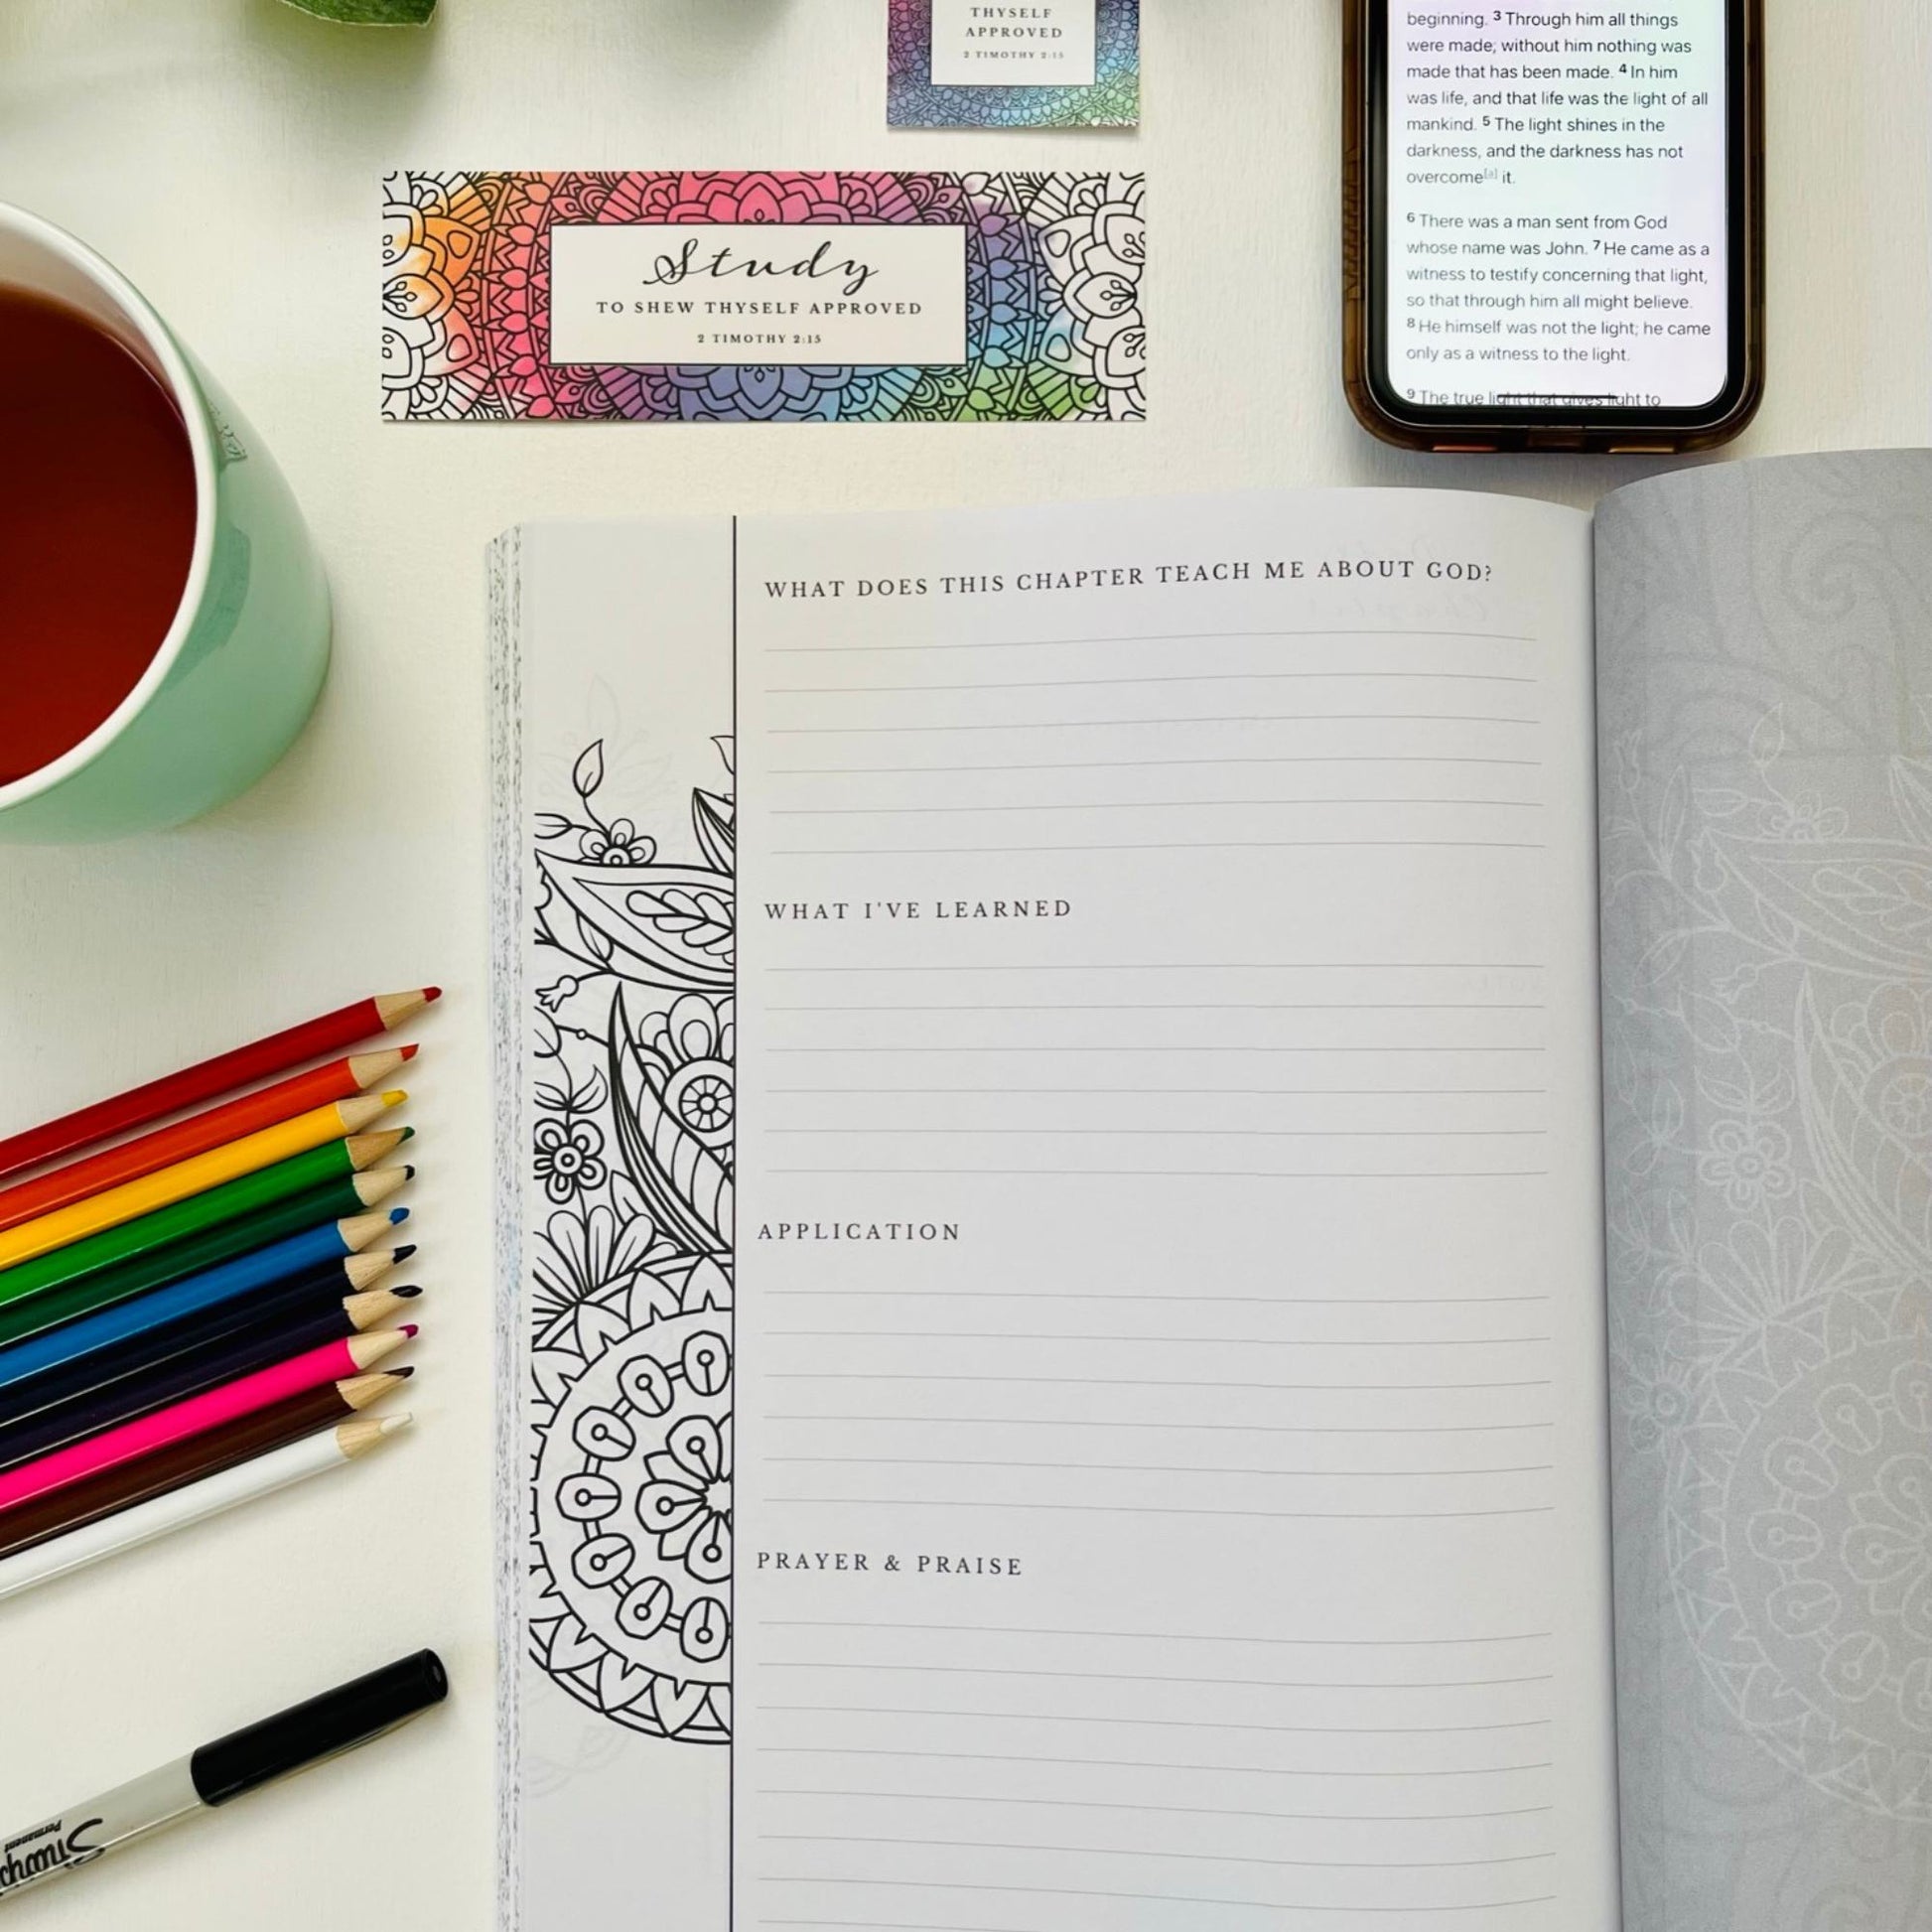 THYSELF
APPROVED
2 TIMOTHY 2:15
beginning. 3 Through him all things
were made; without him nothing was
made that has been made. 4 In him
was life, and that life was the light of all
mankind. 5 The light shines in the
darkness, and the darkness has not
overcome[a] it.
6 There was a man sent from God
whose name was John. 7 He came as a
witness to testify concerning that light,
so that through him all might believe.
8 He himself was not the light; he came
only as a witness to the light.
9 The true light that gives light to
Study
TO SHEW THYSELF APPROVED
2 TIMOTHY 2:15
WHAT DOES THIS CHAPTER TEACH ME ABOUT GOD?
WHAT I'VE LEARNED
APPLICATION
PRAYER & PRAISE
Sharpie
Permanent